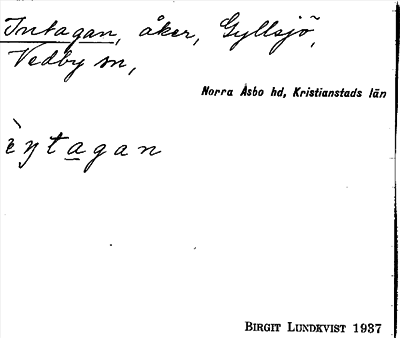 Intagan, åker, Gyllsjö,
Vedby sn,
Norra Åsbo hd, Kristianstads län
èŋtagan
BIRGIT LUNDKVIST 1937